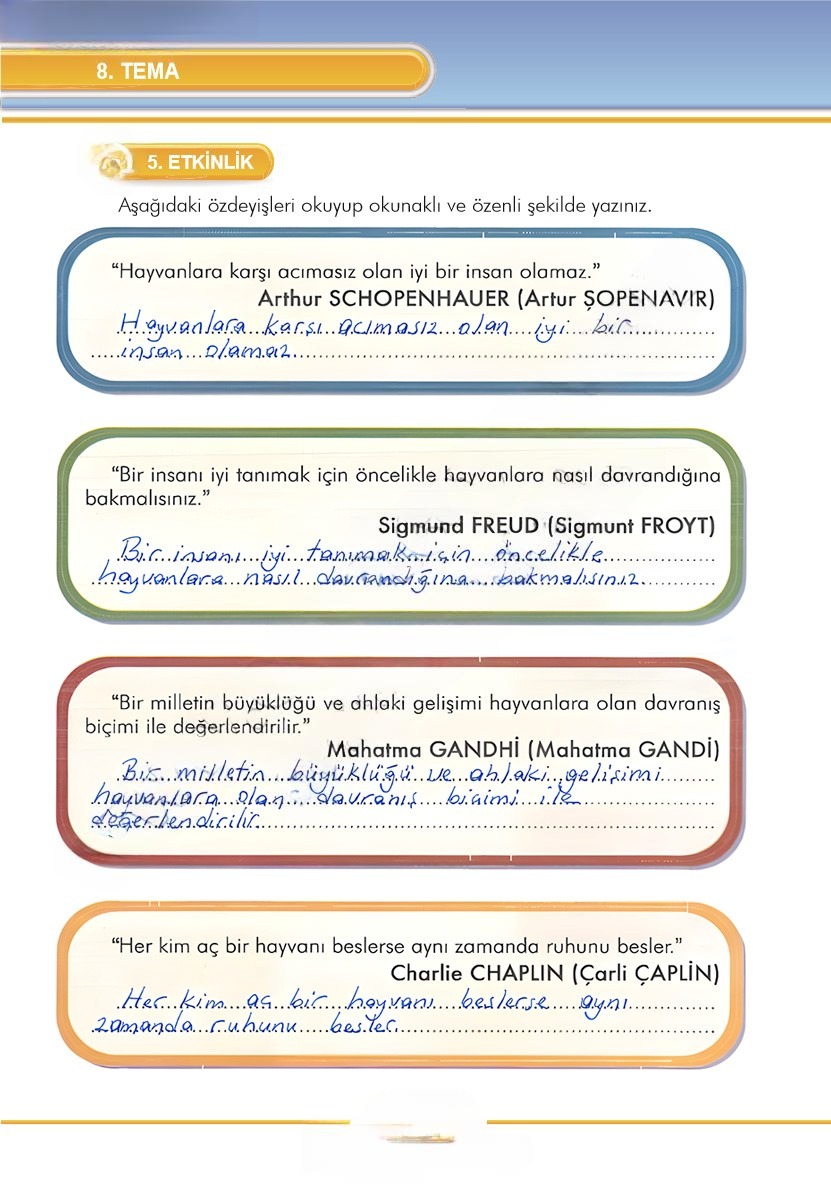 8. TEMA
5. ETKİNLİK
Aşağıdaki özdeyişleri okuyup okunaklı ve özenli şekilde yazınız.
“Hayvanlara karşı acımasız olan iyi bir insan olamaz.”
Arthur SCHOPENHAUER (Artur ŞOPENAVIR)
Hayvanlara karşı acımasız olan iyi bir
insan olamaz.
“Bir insanı iyi tanımak için öncelikle hayvanlara nasıl davrandığına
bakmalısınız.”
Sigmund FREUD (Sigmunt FROYT)
Bir insanı iyi tanımak için öncelikle
hayvanlara nasıl davrandığına bakmalısınız.
“Bir milletin büyüklüğü ve ahlaki gelişimi hayvanlara olan davranış
biçimi ile değerlendirilir.”
Mahatma GANDHİ (Mahatma GANDİ)
Bir milletin büyüklüğü ve ahlaki gelişimi
hayvanlara olan davranış biçimi ile
değerlendirilir.
“Her kim aç bir hayvanı beslerse aynı zamanda ruhunu besler.”
Charlie CHAPLIN (Çarli ÇAPLİN)
Her kim aç bir hayvanı beslerse aynı
zamanda ruhunu besler.